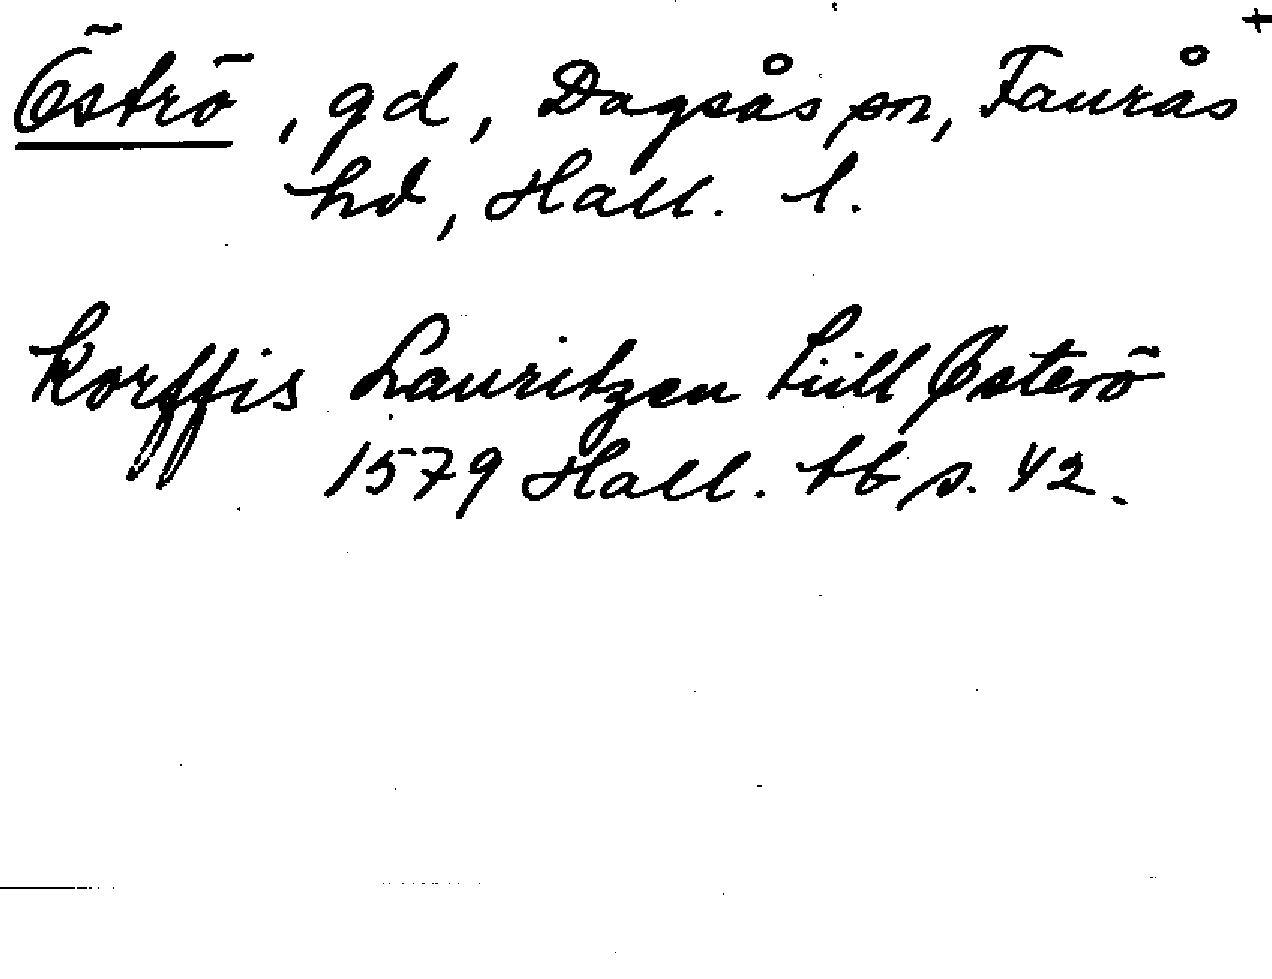 Öströ, gd, Dagsås sn, Faurås +
hd, Hall. l.
Korffis Lauritzen tiill Østerö
1579 Hall. tb s. 42.